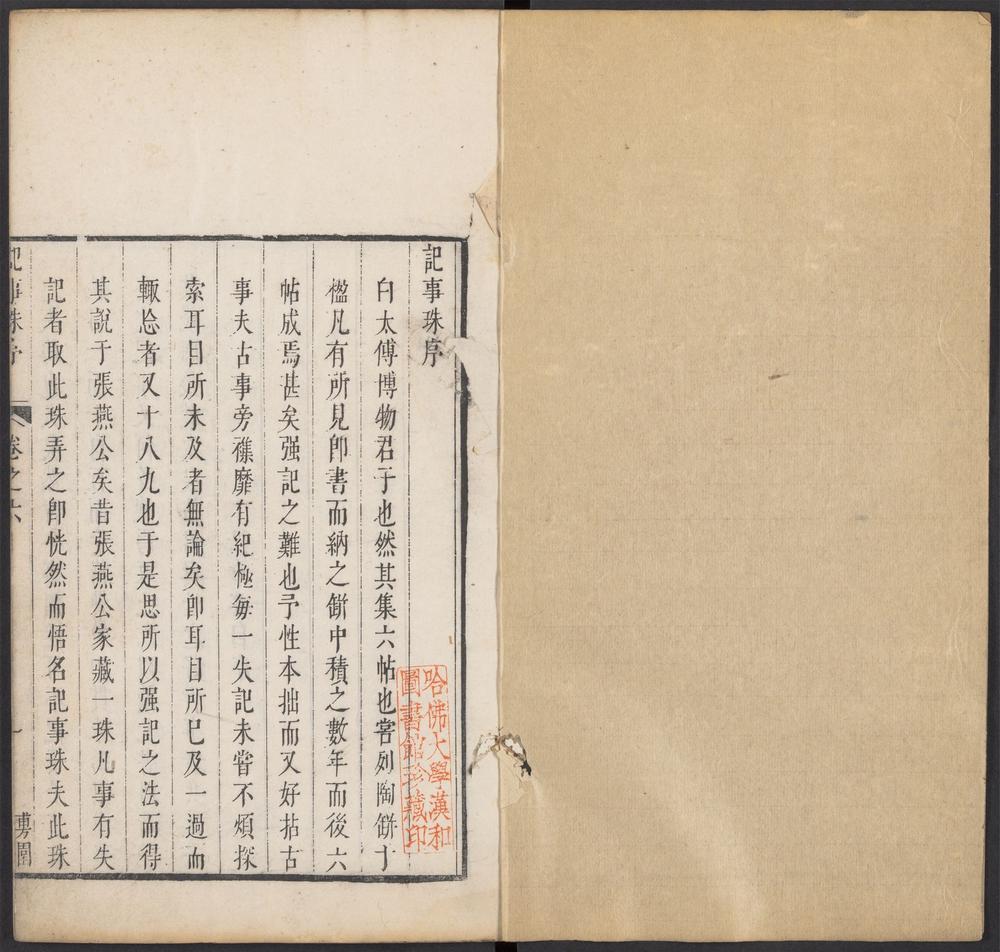 記事珠序
白太傅博物君子也然其集六帖也嘗列陶缾十
楹凡有所見卽書而納之缾中積之數年而後六
帖成焉甚矣强記之難也予性本拙而又好拈古
事夫古事旁襍靡有紀極每一失記未嘗不煩探
索耳目所未及者無論矣卽耳目所已及一過而
輙忘者又十八九也于是思所以强記之法而得
其說于張燕公矣昔張燕公家藏一珠凡事有失
記者取此珠弄之卽恍然而悟名記事珠夫此珠
記事珠序
卷之六
一
哈佛大學漢和
圖書館珍藏印